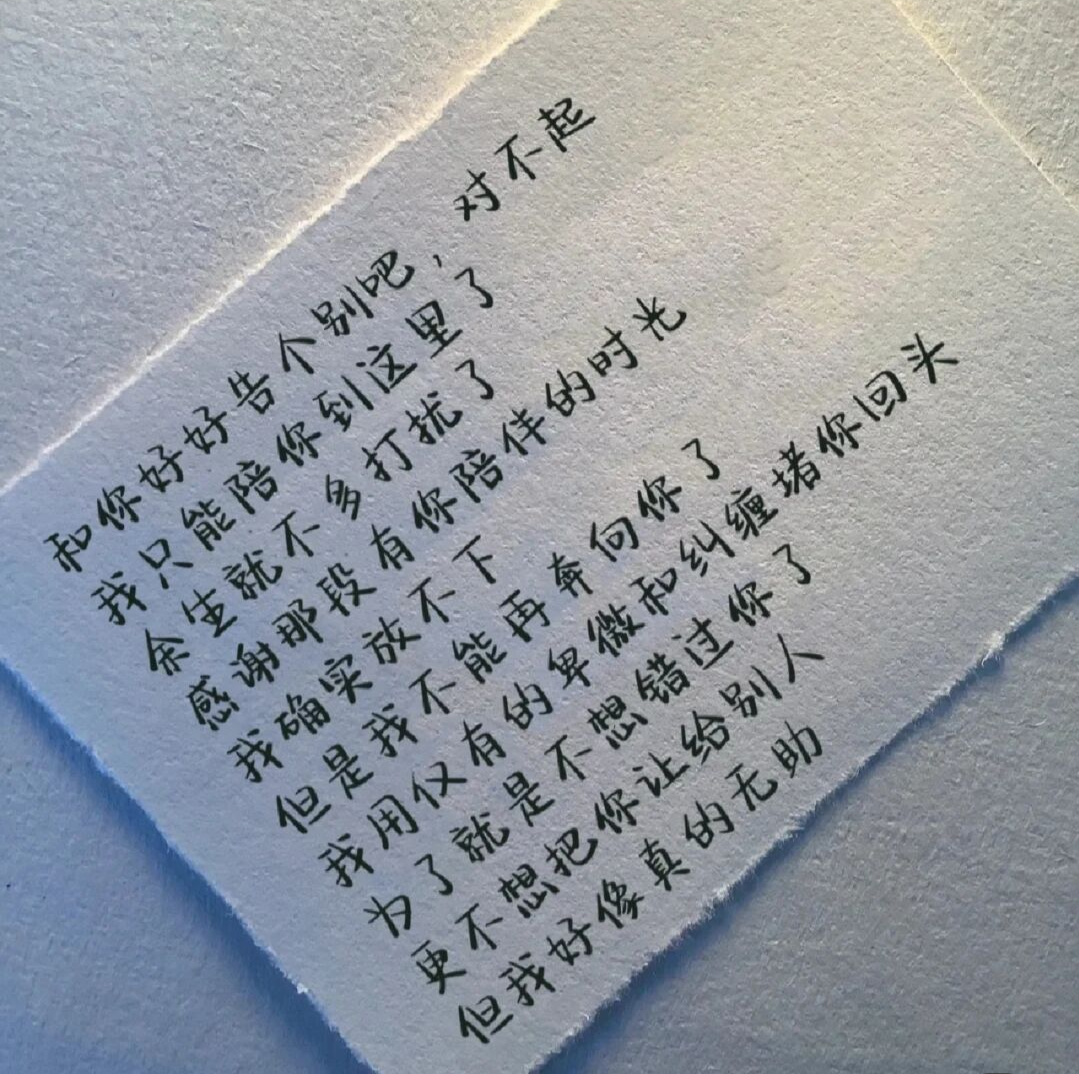 和你好好告个别吧，对不起
我只能陪你到这里了
余生就不多打扰了
感谢那段有你陪伴的时光
我确实放不下
但是我不能再奔向你了
我用仅有的卑微和纠缠堵你回头
为了就是不想错过你了
更不想把你让给别人
但我好像真的无助